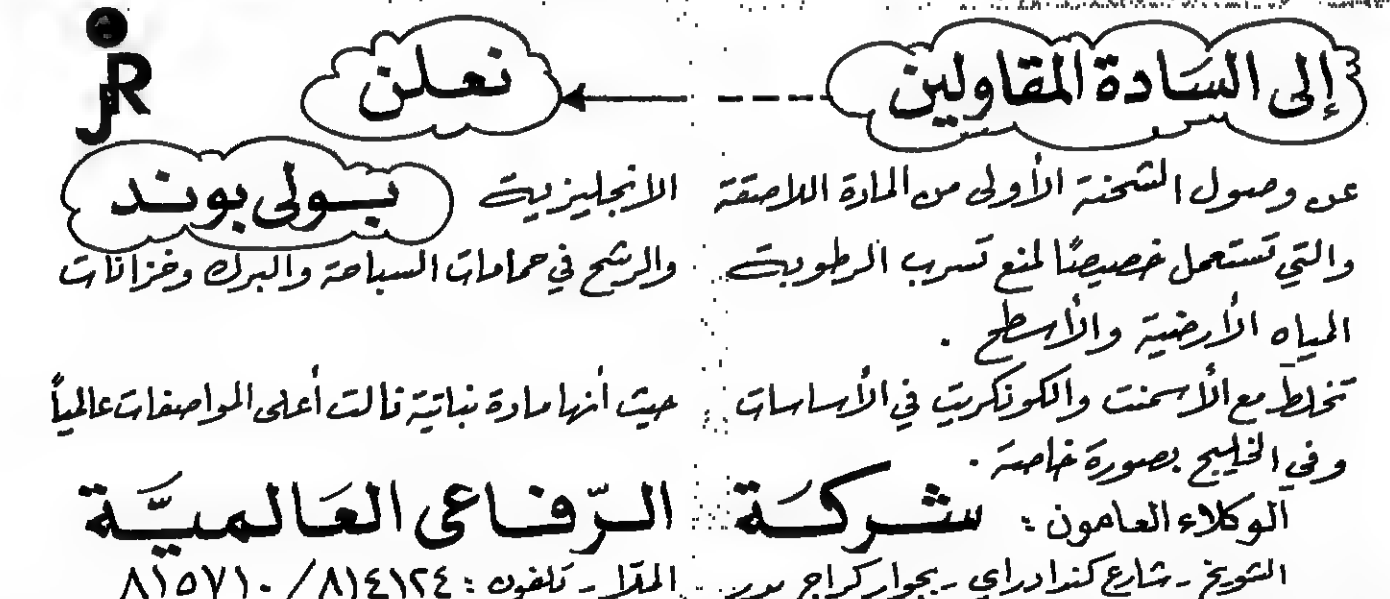 إلى السادة المقاولين نعلن
JR
عن وصول الشحنة الأولى من المادة اللاصقة الانجليزية بولى بوند
والتي تستعمل خصيصًا لمنع تسرب الرطوبة والرشح في حمامات السباحة والبرك وخزانات
المياه الأرضية والأسطح .
تخلط مع الأسمنت والكونكريت في الأساسات حيث أنها مادة نباتية نالت أعلى المواصفات عالمياً
وفي الخليج بصورة خاصة .
الوكلاء العامون : شركة الرفاعى العالمية
الشويخ - شارع كندا دراي - بجوار كراج بدر الملا - تلفون : ٨١٤١٢٤ / ٨١٥٧١٠